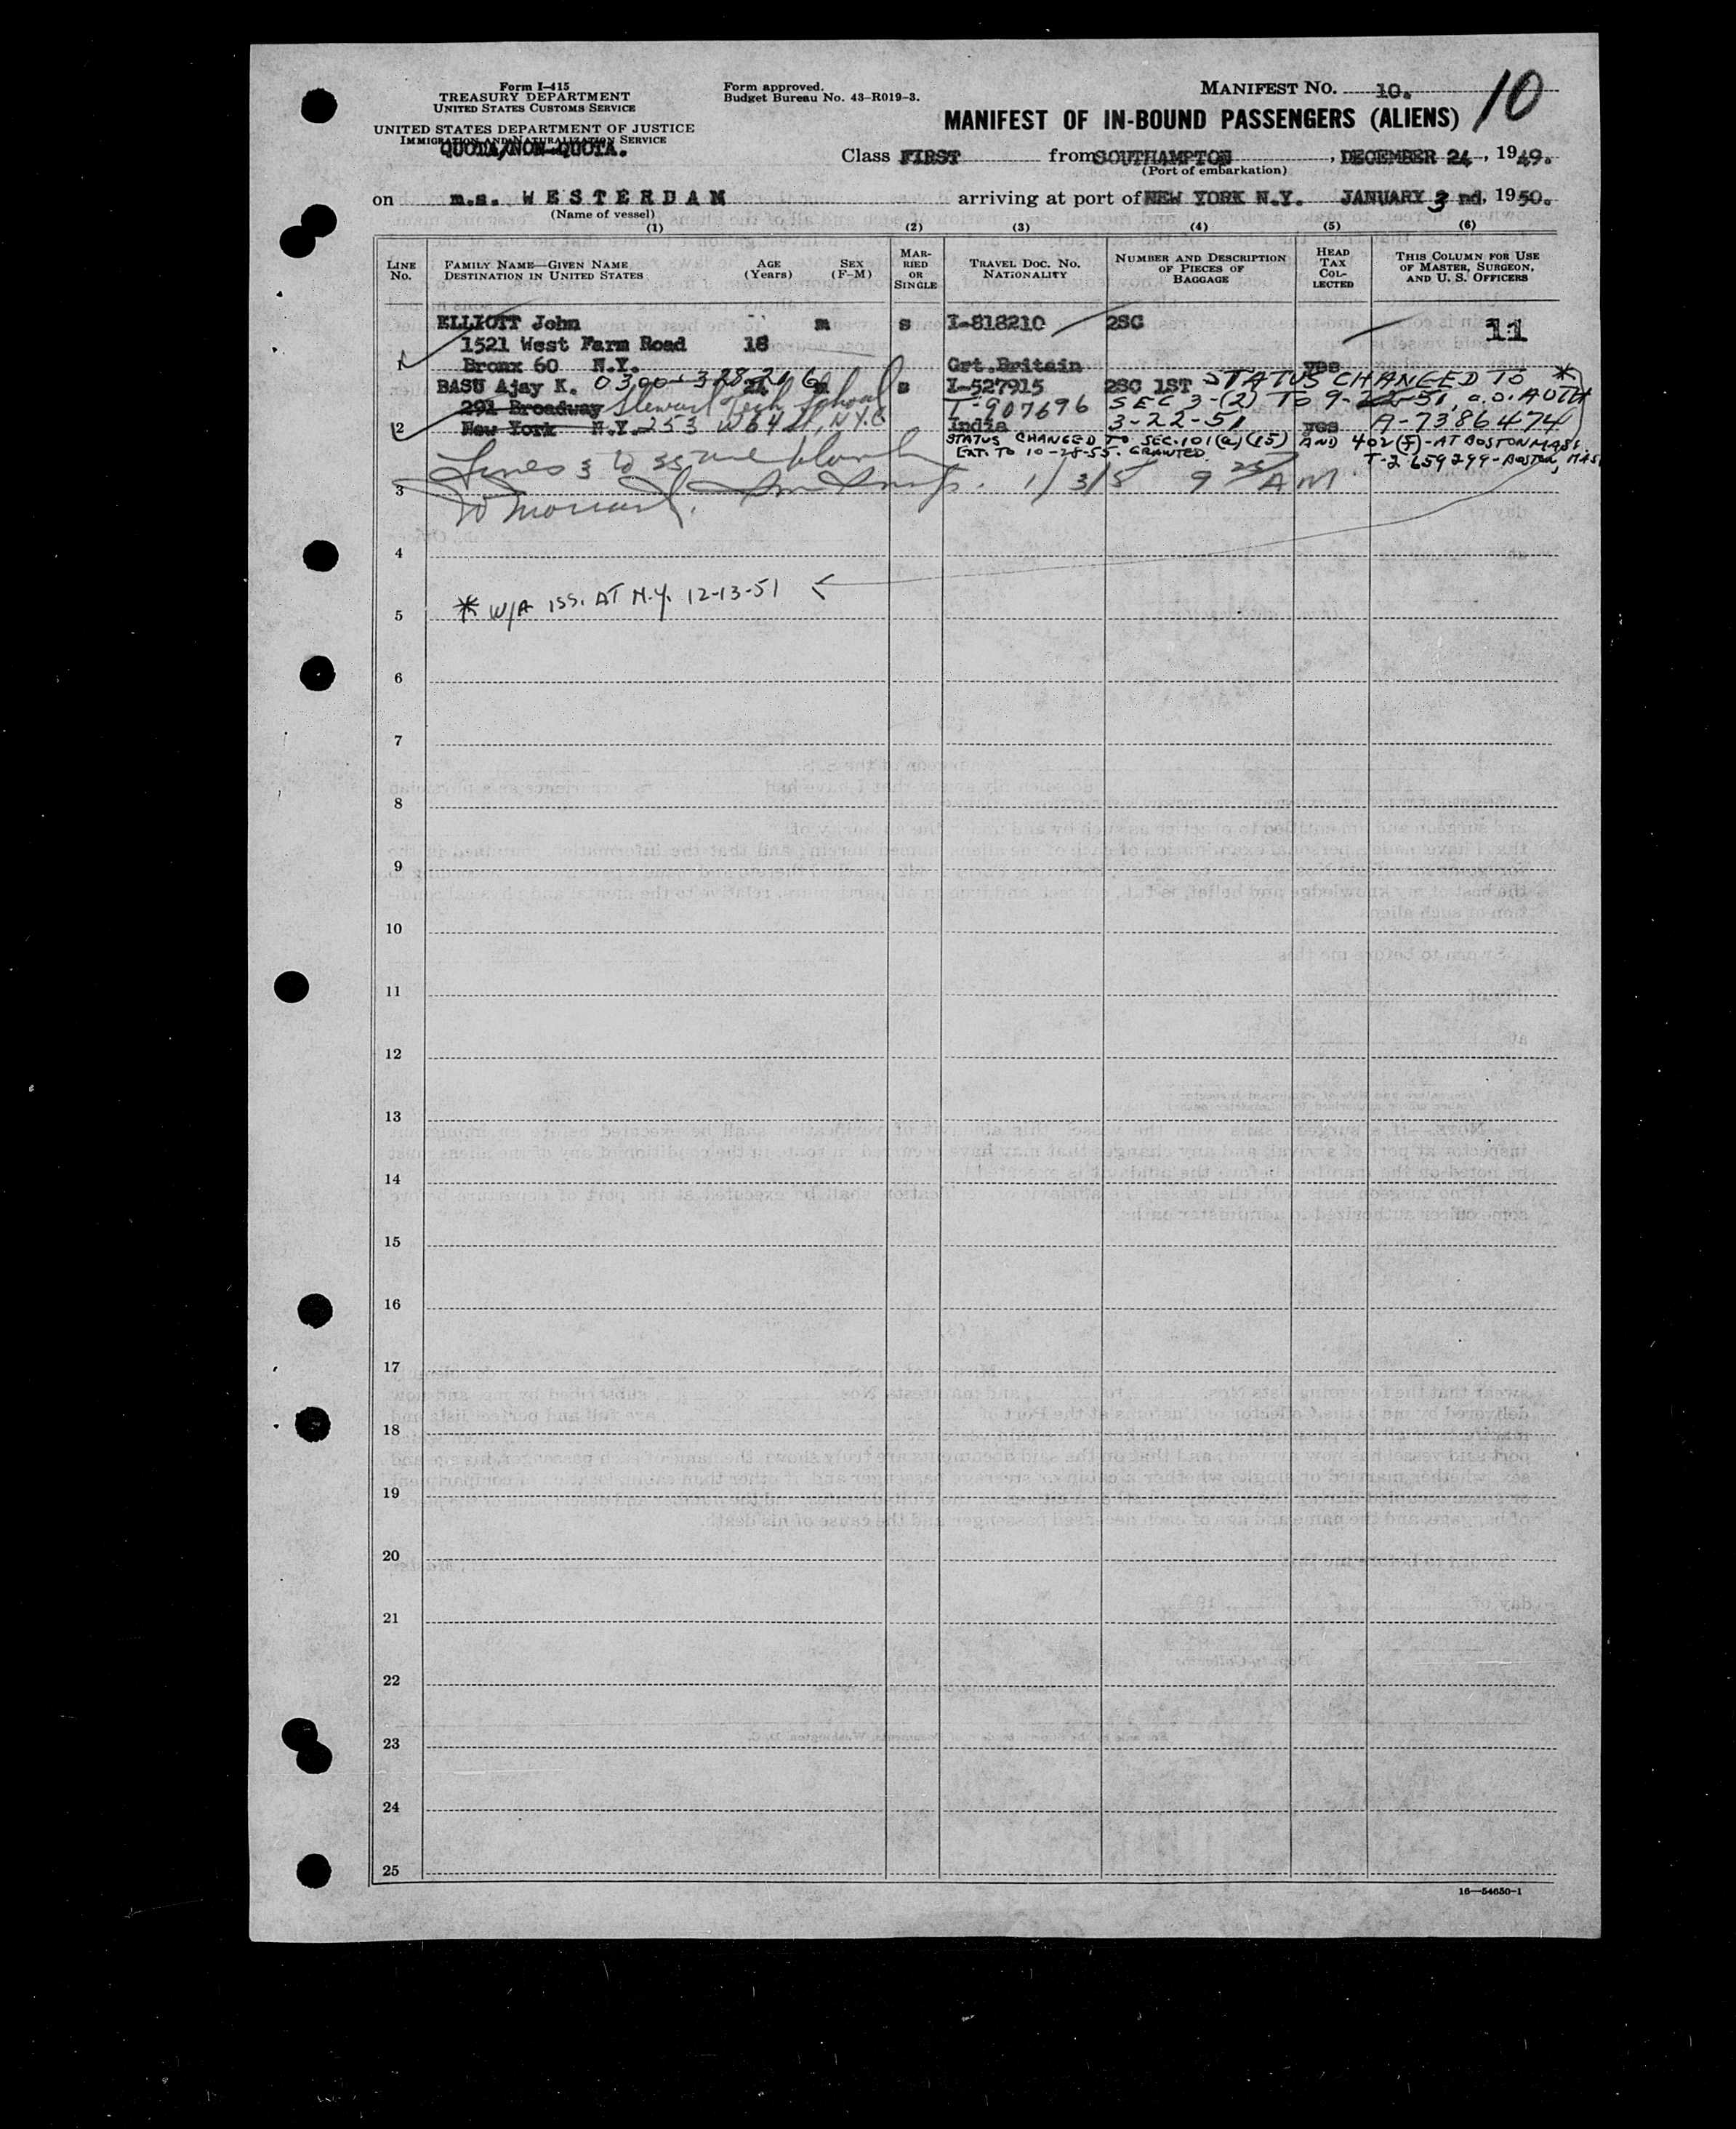 Form I-415
TREASURY DEPARTMENT
UNITED STATES CUSTOMS SERVICE
UNITED STATES DEPARTMENT OF JUSTICE
IMMIGRATION AND NATURALIZATION SERVICE
QUOTA/NON-QUOTA.
Form approved.
Budget Bureau No. 43-R019-3.
MANIFEST NO. 10.
10
MANIFEST OF IN-BOUND PASSENGERS (ALIENS)
Class FIRST from SOUTHAMPTON, DECEMBER 24, 1949.
(Port of embarkation)
on m.s. WESTERDAM arriving at port of NEW YORK N.Y. JANUARY 3 nd, 1950.
(Name of vessel)
(1) (2) (3) (4) (5) (6)
LINE NO. FAMILY NAME—GIVEN NAME DESTINATION IN UNITED STATES AGE (Years) SEX (F-M) MARRIED OR SINGLE TRAVEL DOC. NO. NATIONALITY NUMBER AND DESCRIPTION OF PIECES OF BAGGAGE HEAD TAX COLLECTED THIS COLUMN FOR USE OF MASTER, SURGEON, AND U. S. OFFICERS
ELLIOTT John m s I-818210 2SC 11
1521 West Farm Road 18
1 Bronx 60 N.Y. Grt.Britain yes
BASU Ajay K. 0300-328 m s I-527915 2SC 1ST STATUS CHANGED TO *
291 Broadway Stewart Tech School T-907696 SEC 3-(2) TO 9-22-51, C.O. AUTH
2 New York N.Y. 253 W 64 St, N.Y.C India 3-22-51 yes A-7386474
STATUS CHANGED TO SEC.101(a)(15) AND 402(f)-AT BOSTON MASS.
EXT. TO 10-28-55. GRANTED T-2659299-BOSTON, MAS
Lines
3 1/3/5 9 25 AM
4
* W/A ISS. AT N.Y. 12-13-51
5
6
7
8
9
10
11
12
13
14
15
16
17
18
19
20
21
22
23
24
25
16—54650-1